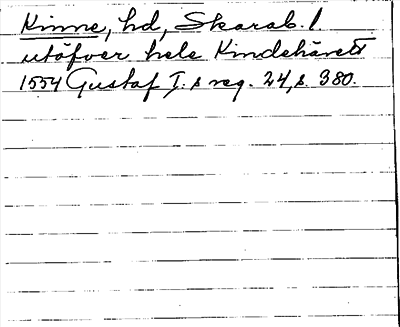 Kinne, hd, Skarab. l
utöfver hele Kindehäret
1554 Gustaf I:s reg. 24, s. 380.